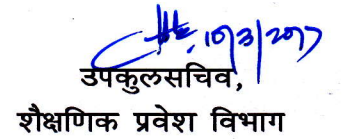 10/3/2017
उपकुलसचिव,
शैक्षणिक प्रवेश विभाग